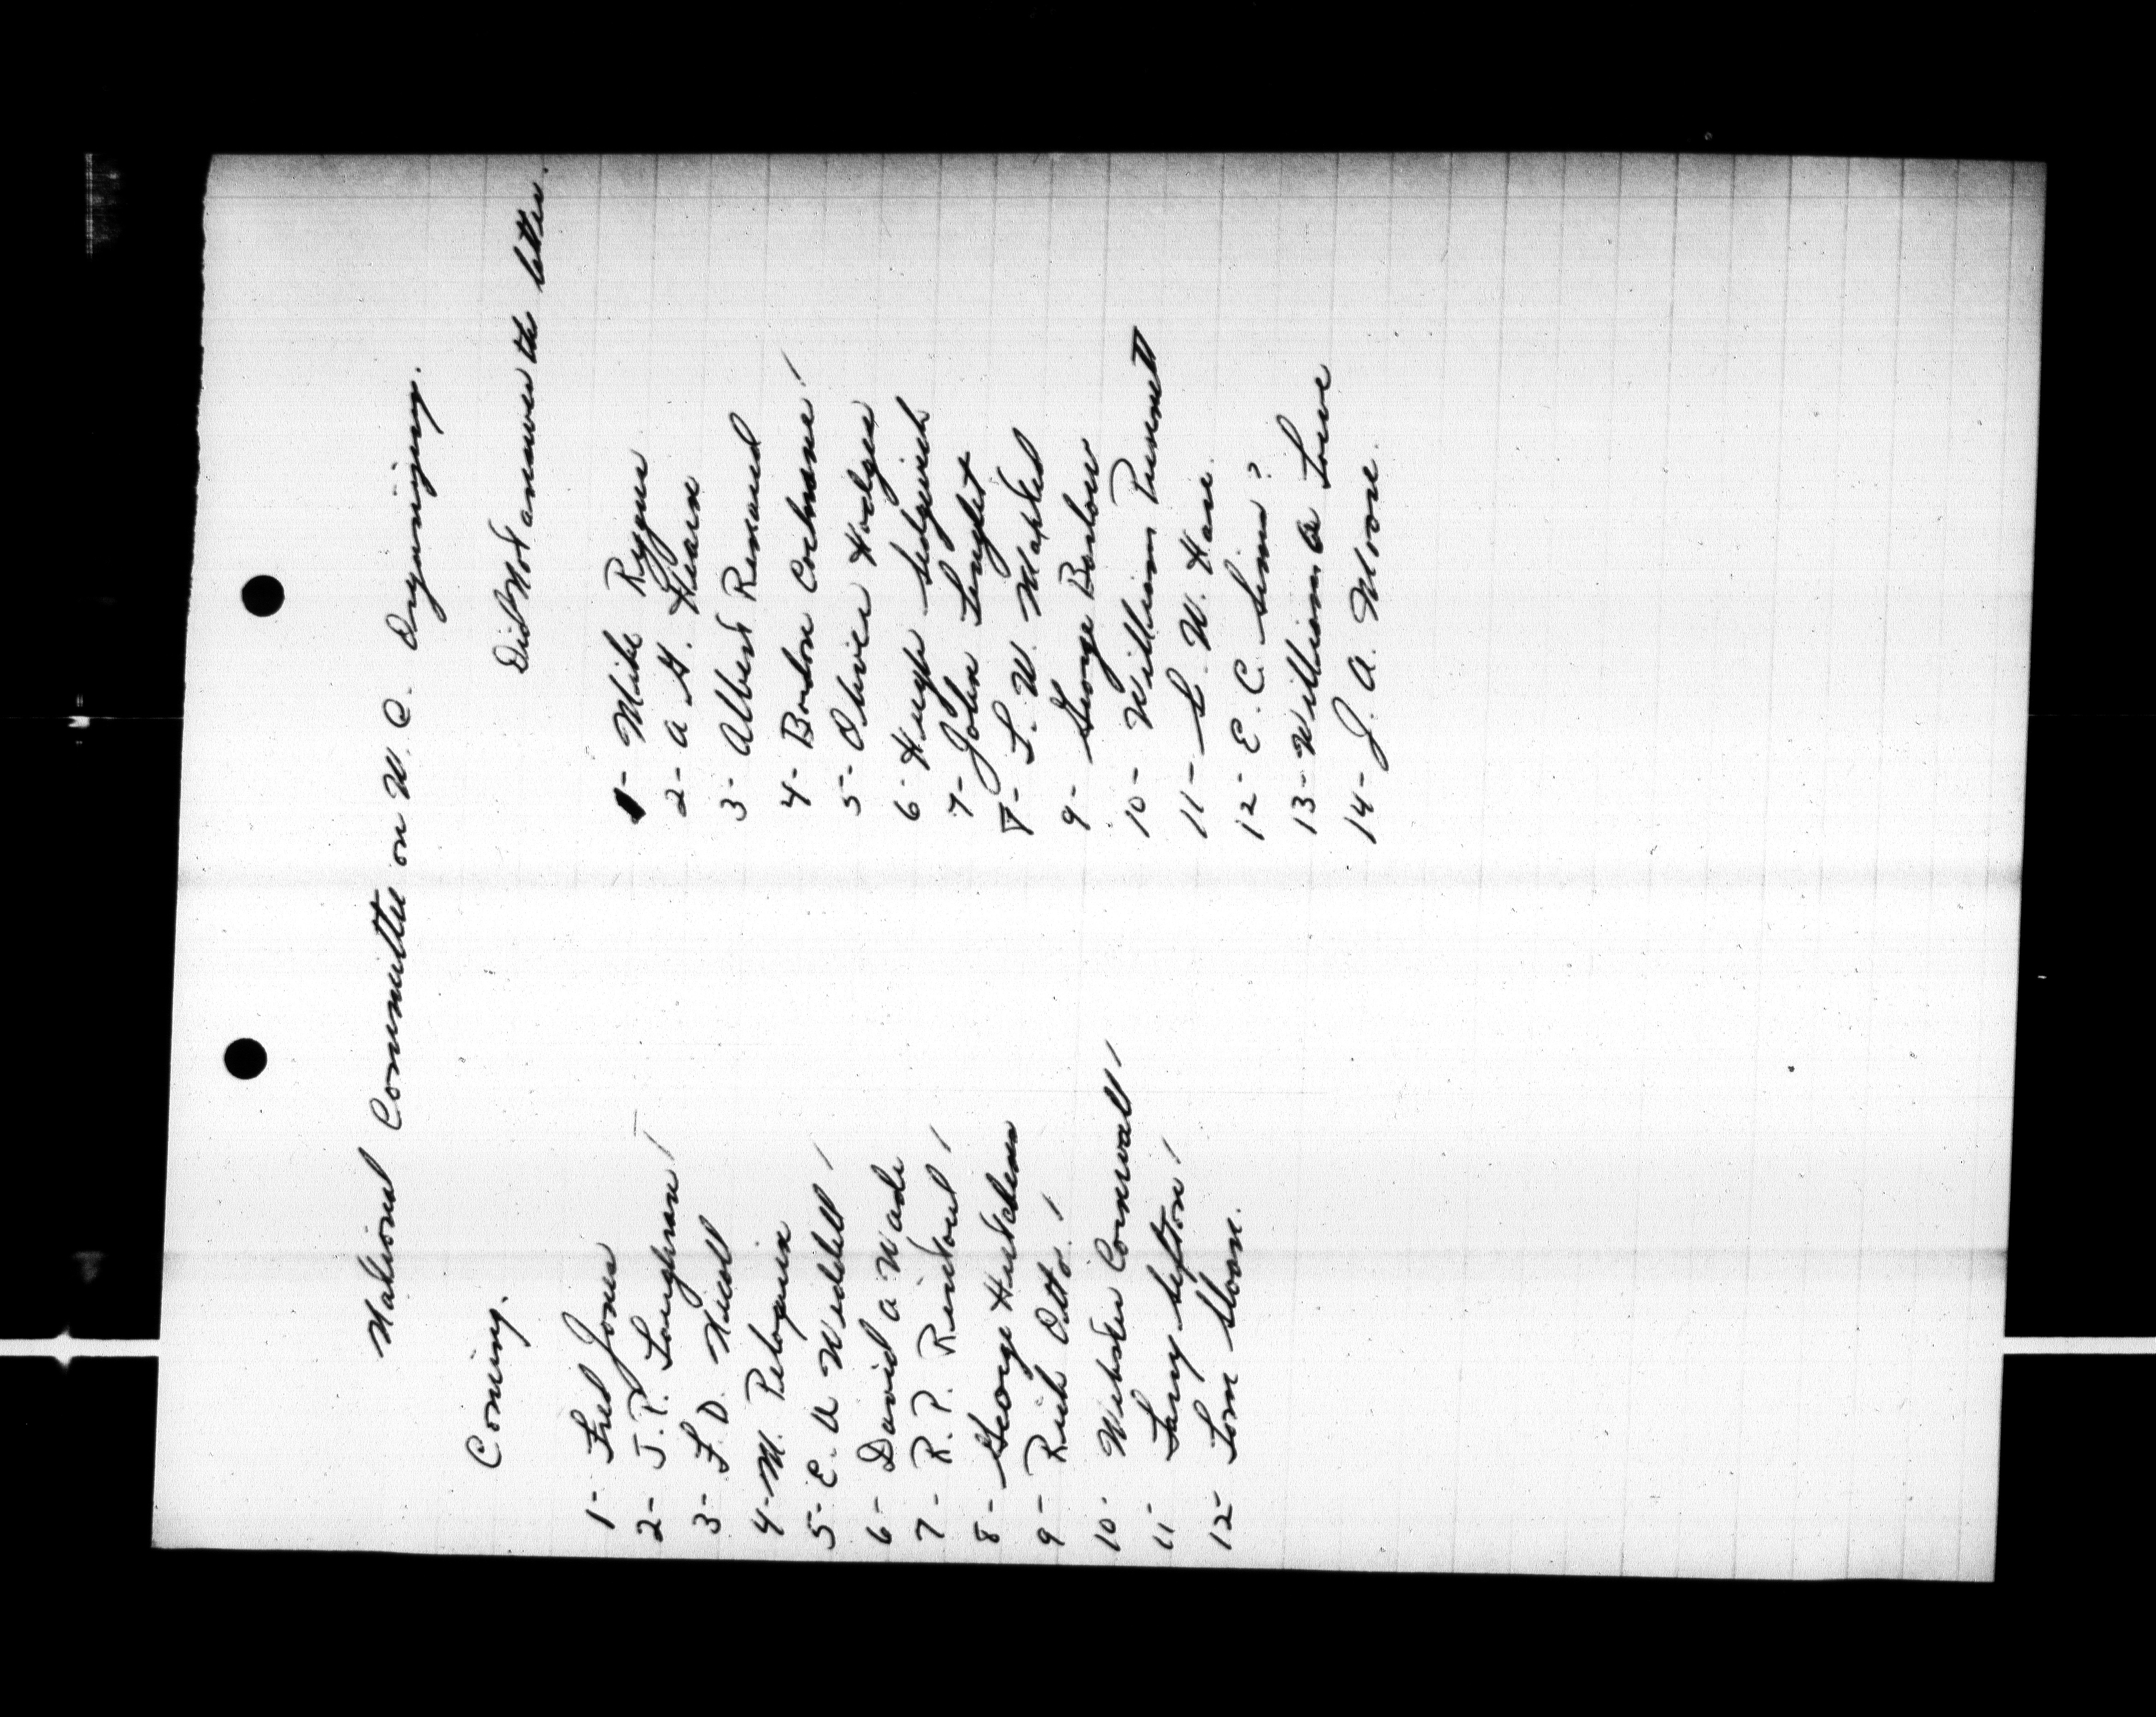 National Committee on W. C. Organizing.
Coming.
1- Fred Jones
2- J. P. Loughran /
3- F. D. Nicoll
4- M. Peloquin
5- E. A Weddell /
6- David A Wade
7- R. P. Rintoul /
8- George Hutchens
9- Rich Otto. /
10- Webster Cornwall /
11- Larry Sefton /
12- Tom Sloan.
Did Not answer the letter.
1- Mike
2- A G. Hearn
3- Albert Renaud
4- Cochrane /
5- Oliver Hodges
6- Hugh Sedgwick
7- John
8-
9- George Barlow
10- William Punnett
11- S. W. Hare
12- E. C. Sims?
13- William
14- J. A. Moore.